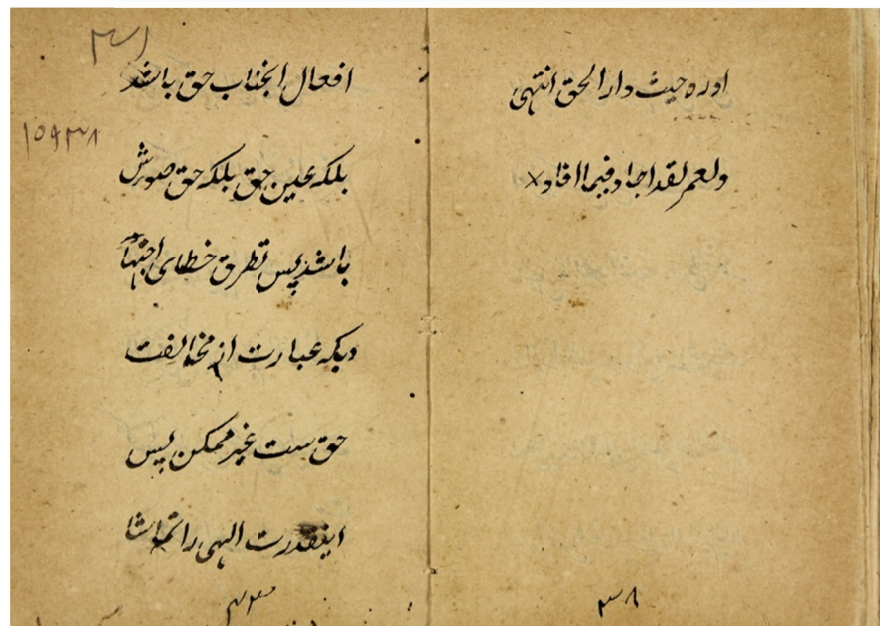 اوره حیث دار الحق انتهی
ولعمر لقد اجاد فیما افاد ×
۳۸
افعال انجناب حق باشد
بلکه عین حق بلکه حق صورش
باشد پس تطرق خطای
دیکه عبارت از مخالفت
حق ست غیر ممکن پس
اینقدرت الهی را تماشا